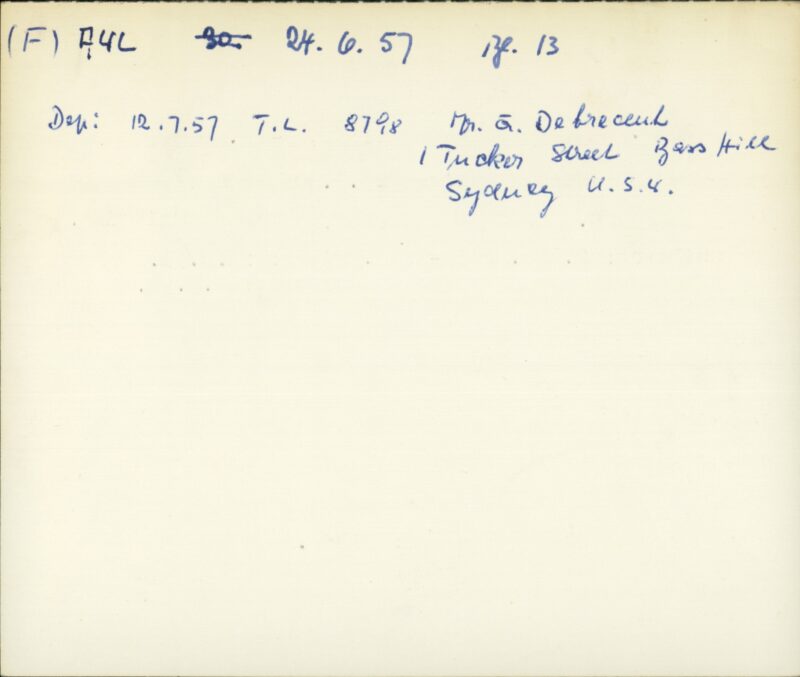 (F) A4L 30. 24. 6. 57 Bl. 13
Dep: 12.7.57 T.L. 8798 Mr. G. Debreceni
1 Tucker Street Bass Hill
Sydney N.S.W.